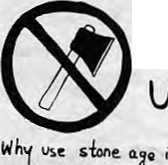 U
Why use stone age